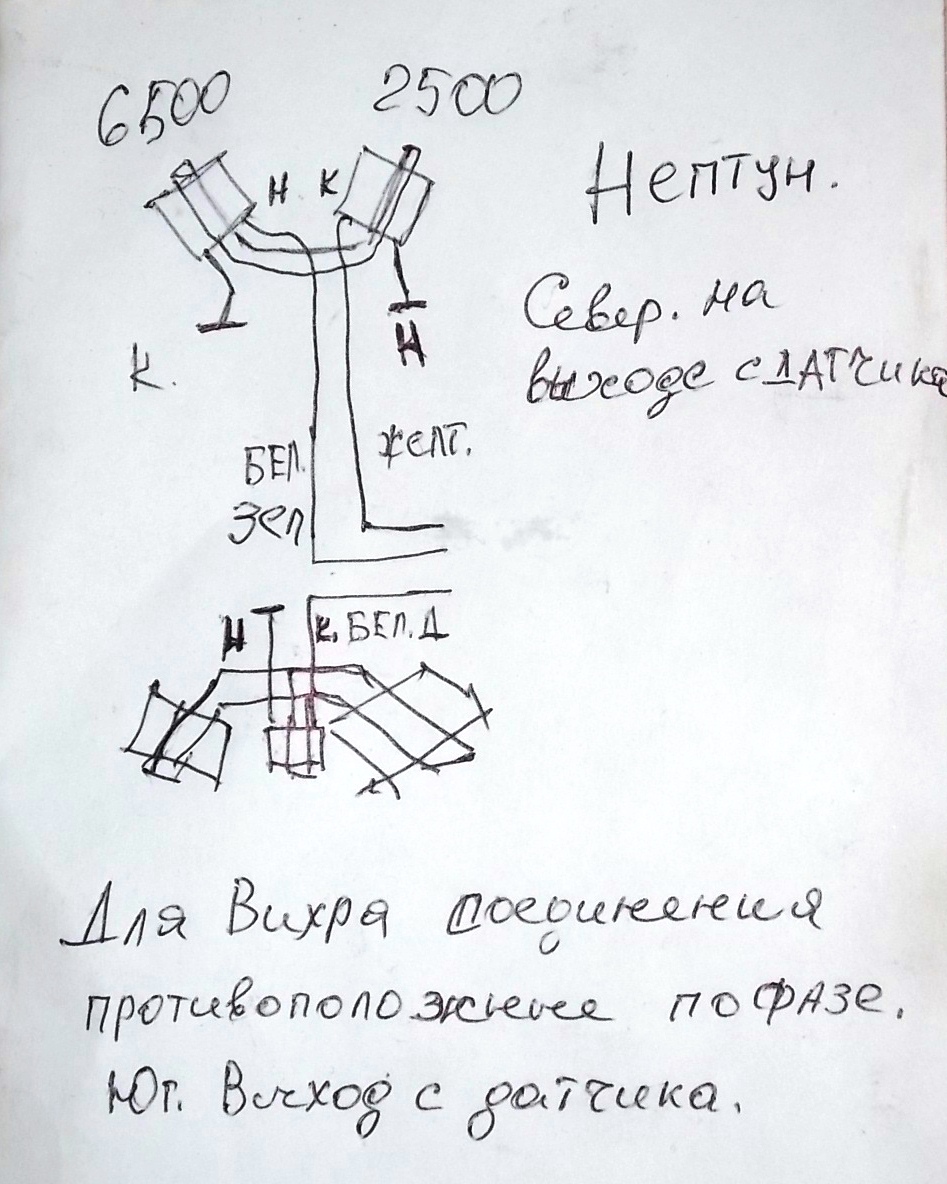 6500 2500
Н К
Нептун.
Север. на
выходе с ДАТчика
К. Н
БЕЛ. ЖЕЛТ.
ЗЕЛ
Н К. БЕЛ. Д
Для Вихра соединения
противоположные по ФАЗЕ.
Юг. Выход с датчика.